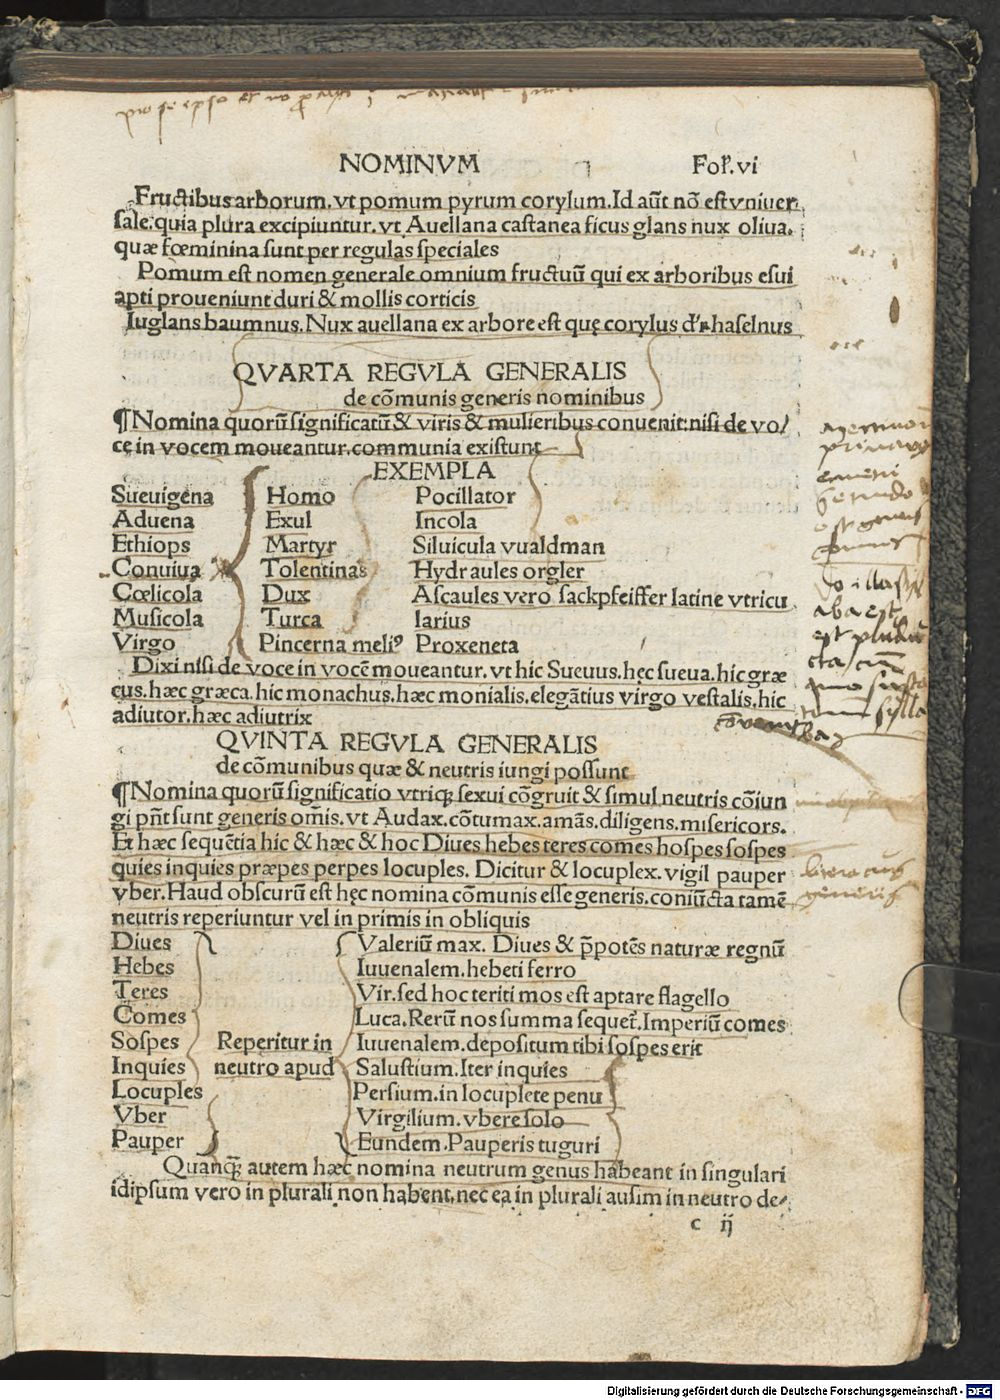 NOMINVM Fol̃.vi
Fructibus arborum. vt pomum pyrum corylum. Id aũt nõ est vniuer
sale: quia plura excipiuntur. vt Auellana castanea ficus glans nux oliua.
quæ fœminina sunt per regulas speciales
Pomum est nomen generale omnium fructuũ qui ex arboribus esui
apti proueniunt duri & mollis corticis
Iuglans baumnus. Nux auellana ex arbore est quę corylus haselnus
QVARTA REGVLA GENERALIS
de cõmunis generis nominibus
¶Nomina quorũ significatũ & viris & mulieribus conuenit: nisi de vo/
ce in vocem moueantur. communia existunt
EXEMPLA
Sueuigena Homo Pocillator
Aduena Exul Incola
Ethiops Martyr Siluicula vualdman
Conuiua Tolentinas Hydraules orgler
Cœlicola Dux Ascaules vero sackpfeiffer latine vtricu
Musicola Turca larius
Virgo Pincerna meliꝰ Proxeneta
Dixi nisi de voce in vocẽ moueantur. vt hic Sueuus. hęc sueua. hic græ
cus. hæc græca. hic monachus. hæc monialis. elegãtius virgo vestalis. hic
adiutor. hæc adiutrix
QVINTA REGVLA GENERALIS
de cõmunibus quæ & neutris iungi possunt
¶Nomina quorũ significatio vtriqꝫ sexui cõgruit & simul neutris cõiun
gi pñt sunt generis om̃is. vt Audax. cõtumax. amãs. diligens. misericors.
Et hæc sequẽtia hic & hæc & hoc Diues hebes teres comes hospes sospes
quies inquies præpes perpes locuples. Dicitur & locuplex. vigil pauper
vber. Haud obscurũ est hęc nomina cõmunis esse generis. coniũcta tamẽ
neutris reperiuntur vel in primis in obliquis
Diues Valeriũ max. Diues & p̃potẽs naturæ regnũ
Hebes Iuuenalem. hebeti ferro
Teres Vir. sed hoc teriti mos est aptare flagello
Comes Luca. Rerũ nos summa sequet̃. Imperiũ comes
Sospes Reperitur in Iuuenalem. depositum tibi sospes erit
Inquies neutro apud Salustium. Iter inquies
Locuples Persium. in locuplete penu
Vber Virgilium. vbere solo
Pauper Eundem. Pauperis tuguri
Quanqꝫ autem hæc nomina neutrum genus habeant in singulari
idipsum vero in plurali non habent. nec ea in plurali ausim in neutro de/
c ij
Digitalisierung gefördert durch die Deutsche Forschungsgemeinschaft - DFG